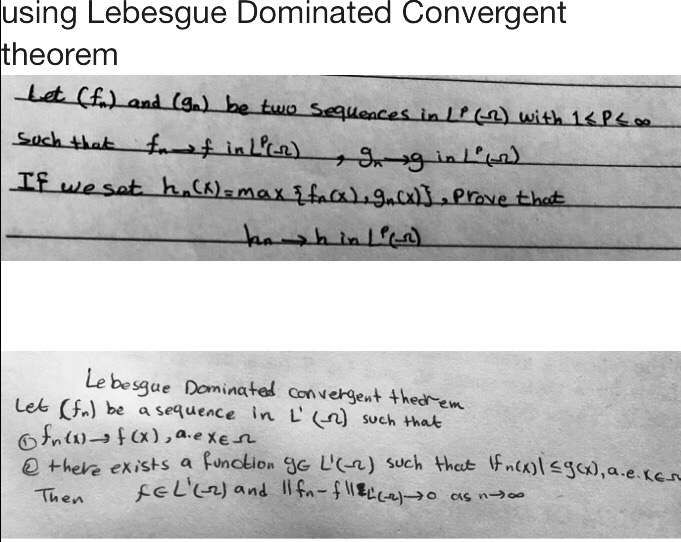 using Lebesgue Dominated Convergent
theorem
Let (fₙ) and (gₙ) be two sequences in Lᵖ(Ω) with 1≤P≤∞
such that fₙ→f in Lᵖ(Ω) , gₙ→g in Lᵖ(Ω)
If we set hₙ(x)=max {fₙ(x),gₙ(x)}, Prove that
hₙ→h in Lᵖ(Ω)
Lebesgue Dominated convergent thedrem
Let (fₙ) be a sequence in L'(Ω) such that
① fₙ(x)→f(x), a.e x∈Ω
② there exists a function g∈ L'(Ω) such that |fₙ(x)|≤g(x), a.e. x∈Ω
Then f∈L'(Ω) and ||fₙ-f||L'(Ω)→0 as n→∞